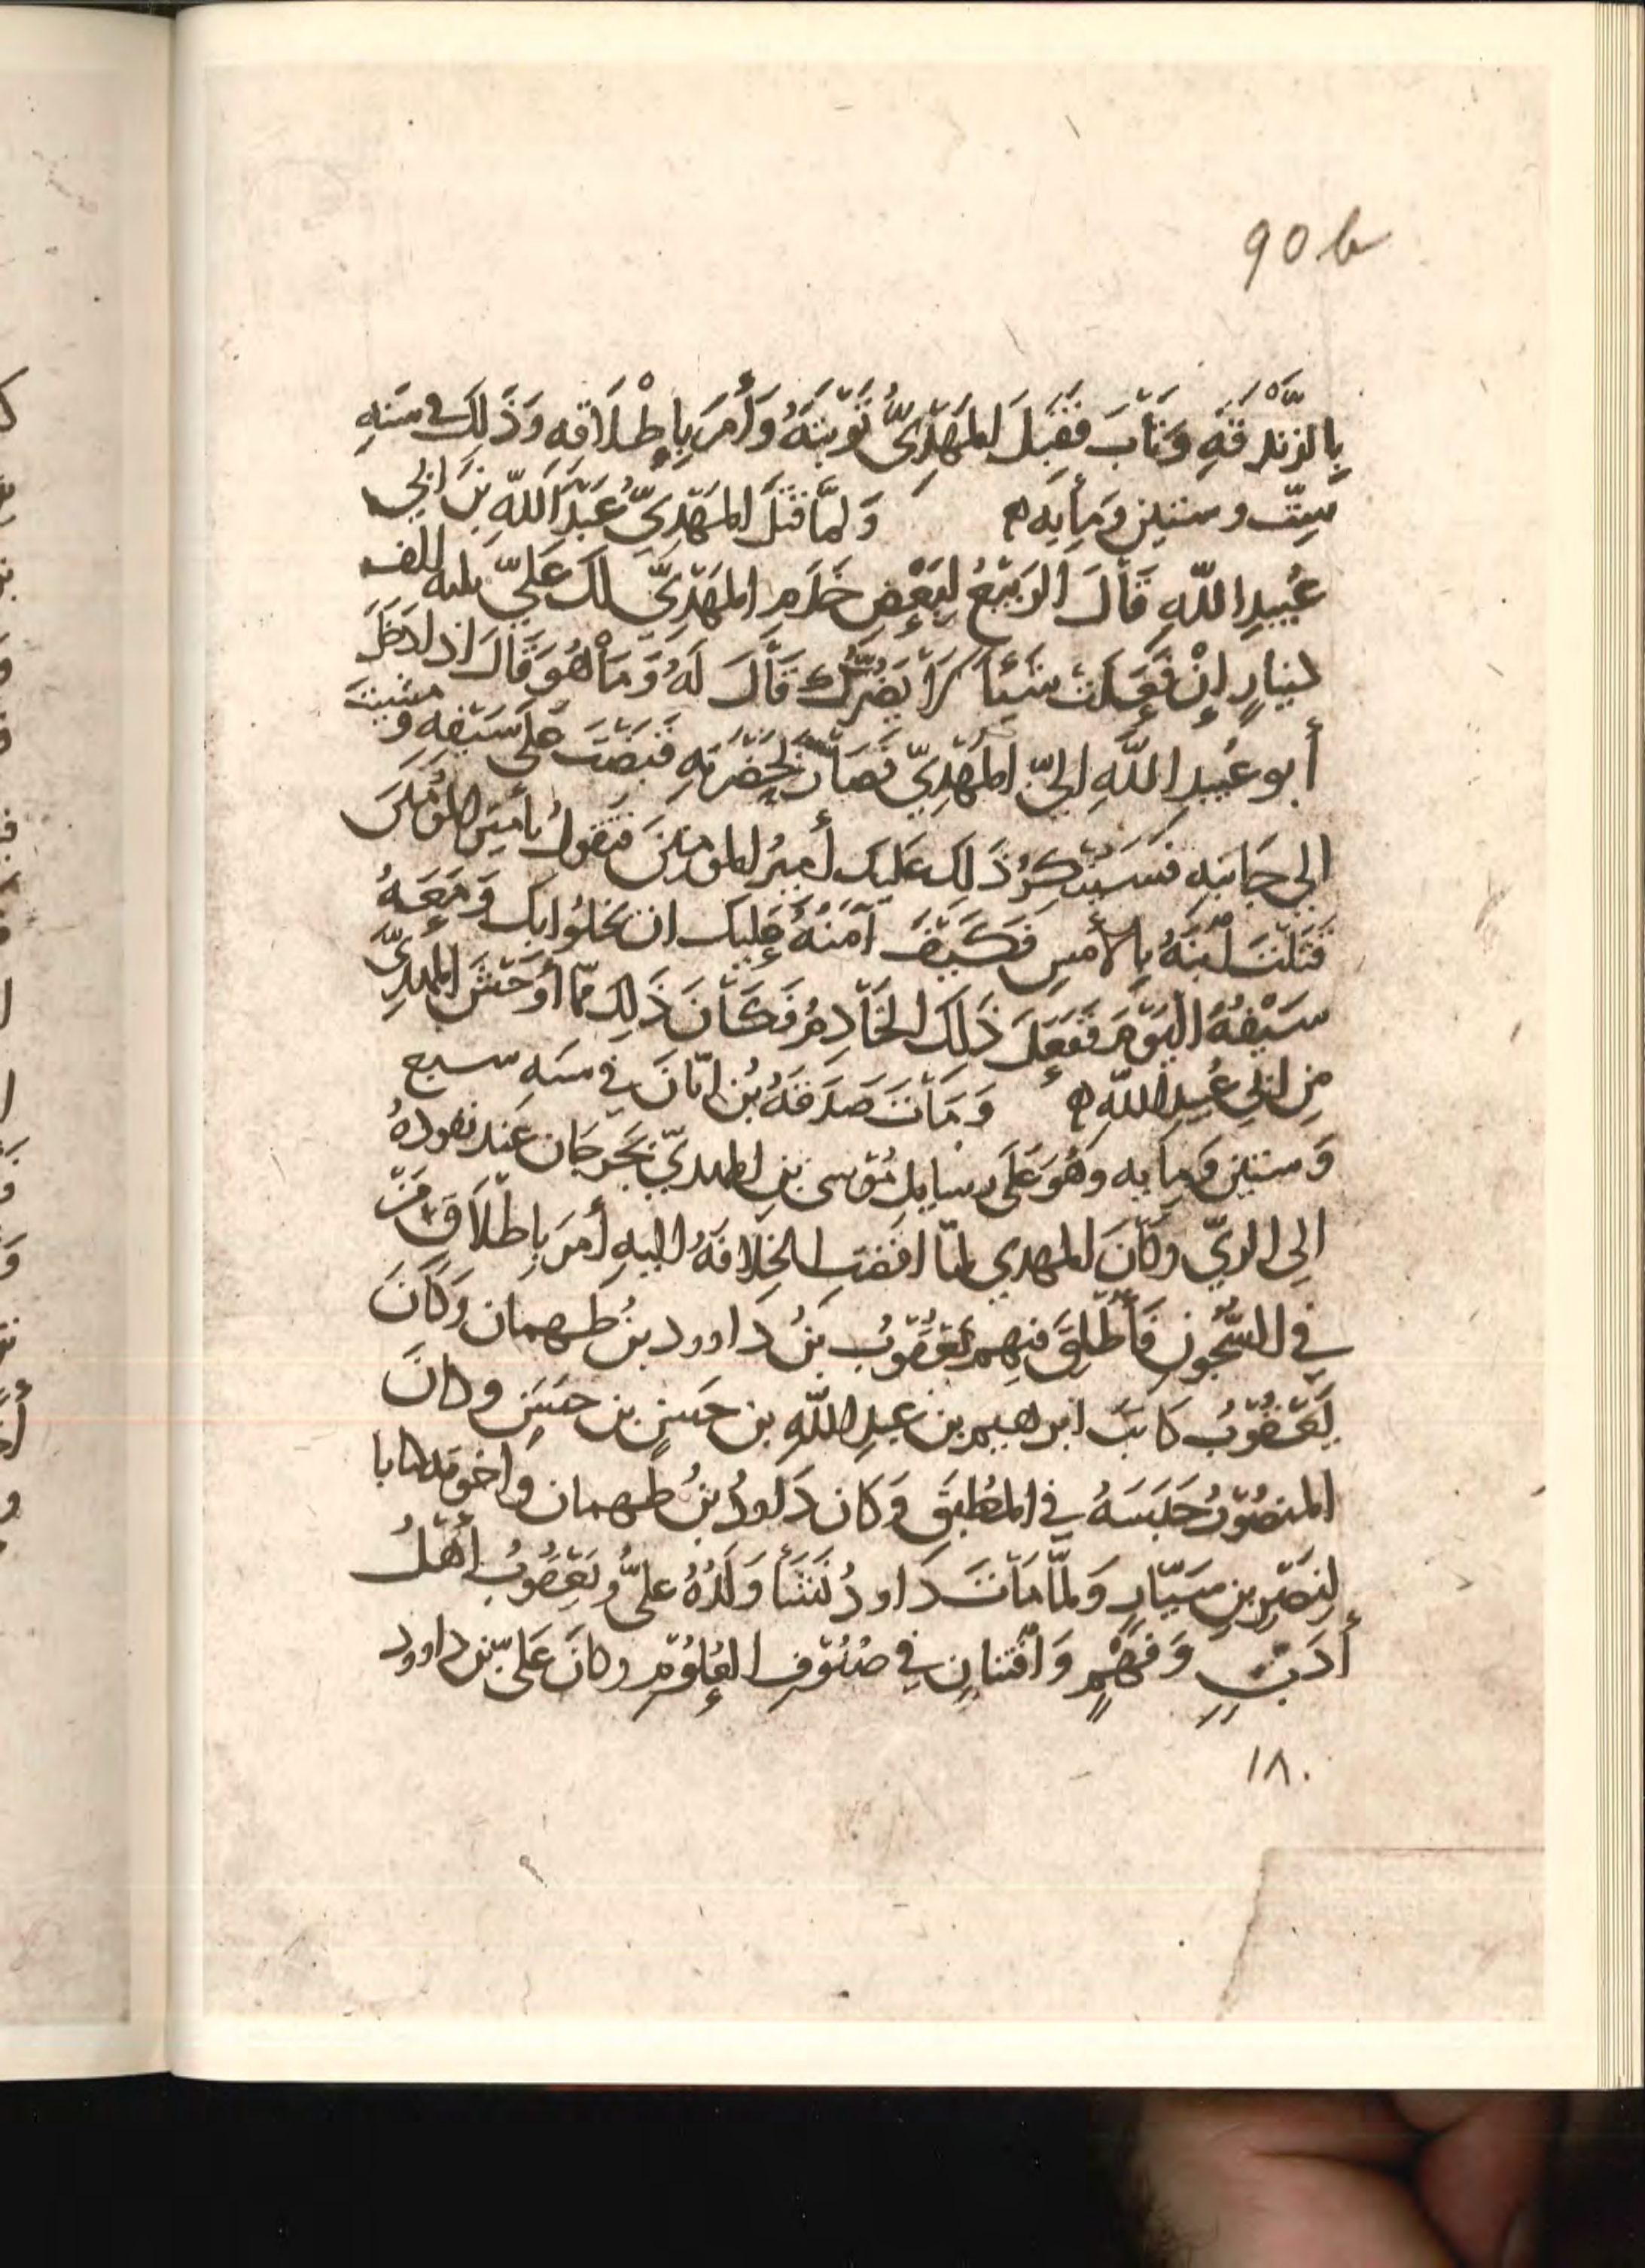 90 b
بِالزَّنْدَقَةِ وَتَابَ فَقَبِلَ المَهْدِيُّ تَوْبَتَهُ وَأَمَرَ بِإِطْلَاقِهِ وَذَلِكَ في سَنَةِ
سِتّ وستين وَمِايه ۞ وَلمَّا قَتَلَ المَهْدِيُّ عَبْدَ اللهِ بنَ ابي
عُبيدِ اللهِ قَالَ الرَبيعُ لِبَعْضِ خَدَمِ المَهْدِيّ لكَ عَلَيّ ثلثه الف
دينارٍ إنْ فَعَلت شَيئا لَا يَضُرّكَ قَالَ لَهُ وَمَا هُوَ قَالَ اذا دَخَلَ
أبو عُبيدِ اللهِ اليّ المَهْدِيّ فَصَارَ بِحَضْرَتِهِ قَبَضْتَ عَلَى سَيْفِهِ وَمشيتَ
الي جَانبِهِ فَسَيُنكِرُ ذَلِكَ عَليك أميرُ المومنينَ فَتَقولُ يا أميرَ المؤمنينَ
قَتَلْتَ ابْنَهُ بِالأمسِ فَكَيْفَ آمَنُهُ عَلِيكَ ان يَخلُوا بِكَ وَمَعَهُ
سَيْفُهُ اليَوْمَ فَفَعَلَ ذَلِكَ الخَادِمُ فَكَانَ ذَلِكَ مّا أوْحَشَ المهديّ
مِن ابي عُبيدِ اللهِ ۞ وَمَاتَ صَدَقَهُ بُن ابَانَ في سنَهِ سبع
وَستين وَمِايه وهُوَ عَلَى رسايل مُوسى بنِ المهديّ بِجُرجَان عند نفوذهُ
الِى الريّ وَكانَ المهدي لمّا افضَتِ الخِلافَهُ اليهِ أمَرَ بِإطْلَاقِ مَنْ
في السُّجُونِ فَأُطْلِقَ مِنهم يَعْقُوبُ بنُ داوود بنُ طهمان وَكَانَ
يَعْقُوبُ كاتبَ ابرهيم بن عبدِ اللهِ بن حَسنٍ بن حَسَنٍ وكانَ
المنصُورُ حَبَسَهُ في المُطبَقِ وَكان دَاودُ بنُ طهمان واخوته كتابا
لِنصْرِ بنِ سَيّارٍ وَلمَّا مَاتَ دَاودُ نَشَأَ وَلَدُهُ عليُّ وَيَعْقُوبُ أهْلُ
أدَبٍ وَفَهْمٍ وَافتنانٍ في صُنُوفِ العُلُوم وكانَ عَلىّ بن داوود
١٨٠